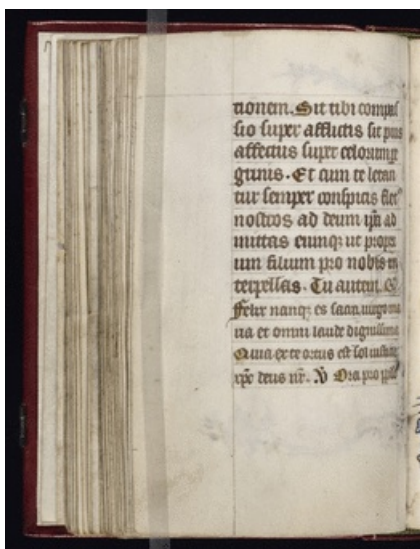 tionem. Sit tibi compas
sio super afflictis sit pius
affectus super celorum pe
grinis. Et cum te letan
tur semper conspicis flet9
nostros ad deum ipm ad
mittas eumq3 ut propri
um filium pro nobis in
terpellas. Tu autem. R
Felix nanq3 es sacra uirgo ma
ria et omni laude dignissima
Quia ex te ortus est sol iusticie
xpc deus nr. V Ora pro ppl'o